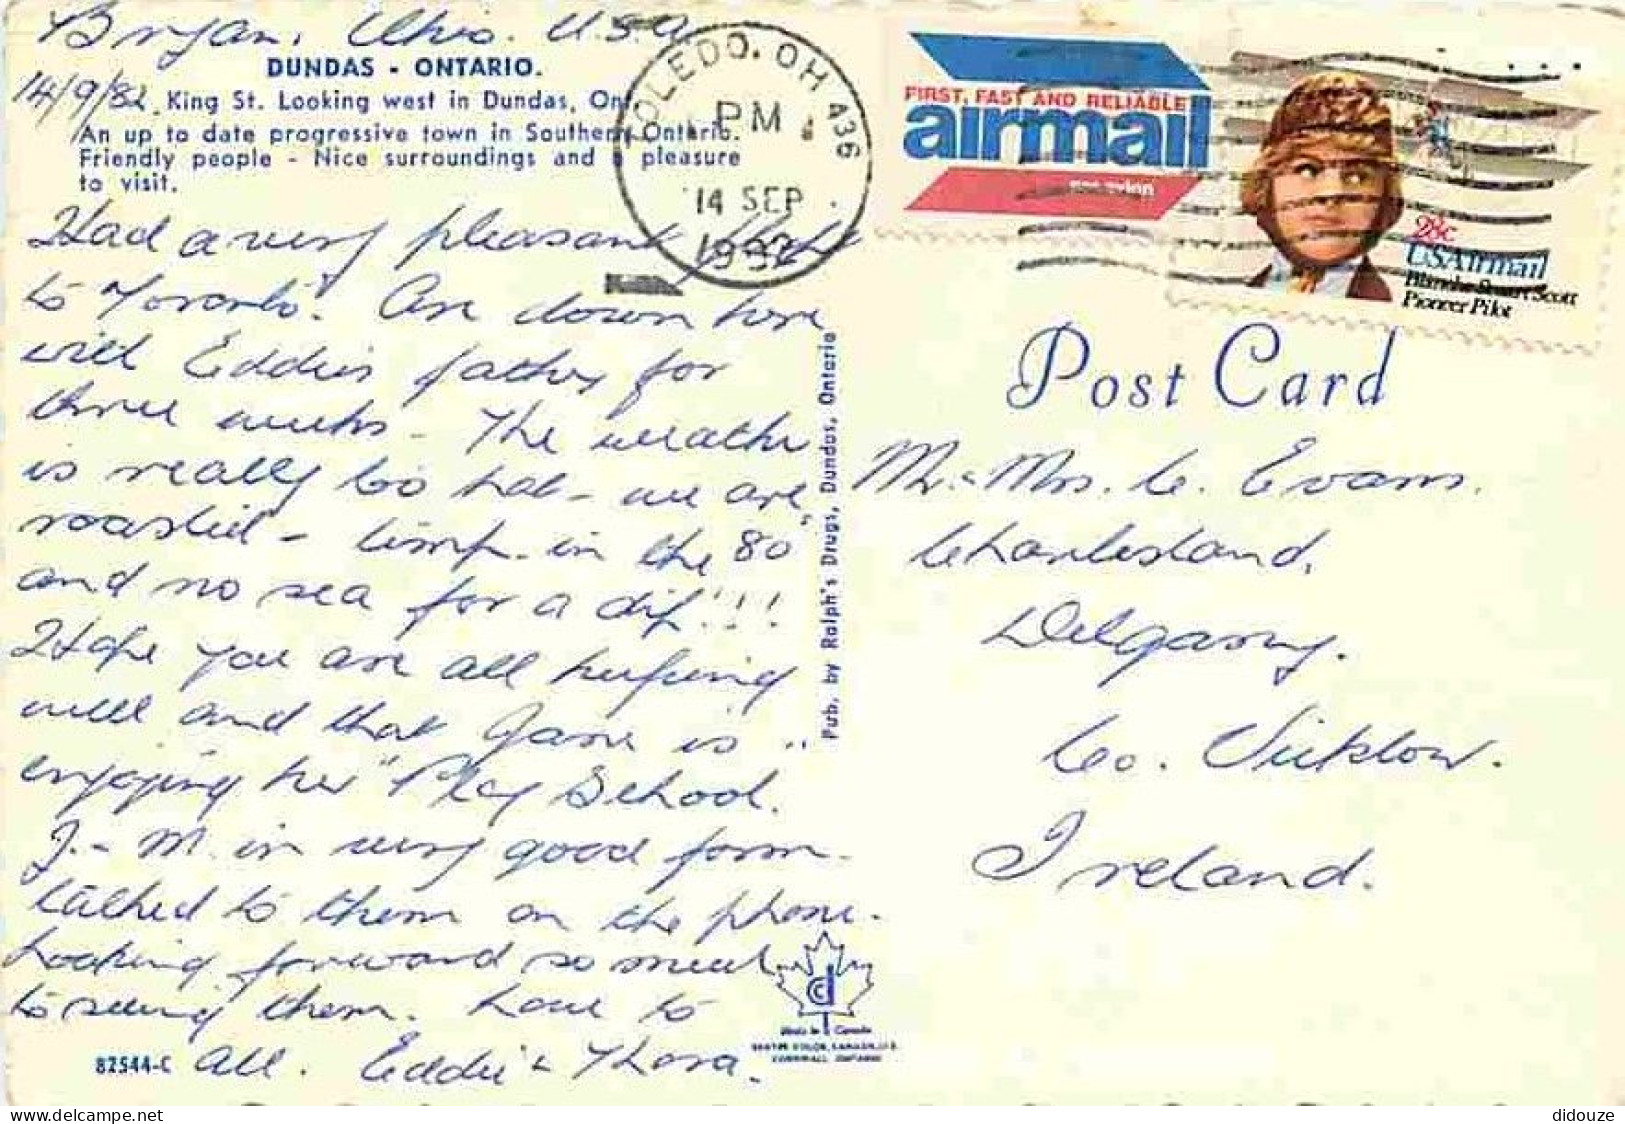 Bryan, Ohio. U.S.A.
14/9/82.
DUNDAS - ONTARIO.
King St. Looking west in Dundas, Ont.
An up to date progressive town in Southern Ontario.
Friendly people - Nice surroundings and a pleasure
to visit.
Had a very pleasant flight
to Toronto. Are down here
with Eddie's father for
three weeks - The weather
is really too hot - we are
roasted - temp. in the 80's
and no sea for a dip!!!
Hope you are all keeping
well and that Jane is
enjoying her "Play School.
J. - M. in very good form -
talked to them on the phone.
Looking forward so much
to seeing them. Love to
all. Eddie & Thora.
82544-C
Pub. by Ralph's Drugs, Dundas, Ontario
Made in Canada
TOLEDO, OH 436
PM
14 SEP
1982
FIRST, FAST AND RELIABLE
airmail
par avion
28c
USAirmail
Blanche Stuart Scott
Pioneer Pilot
Post Card
Mr. & Mrs. C. Evans.
Charlesland,
Delgany.
Co. Wicklow.
Ireland.
didouze